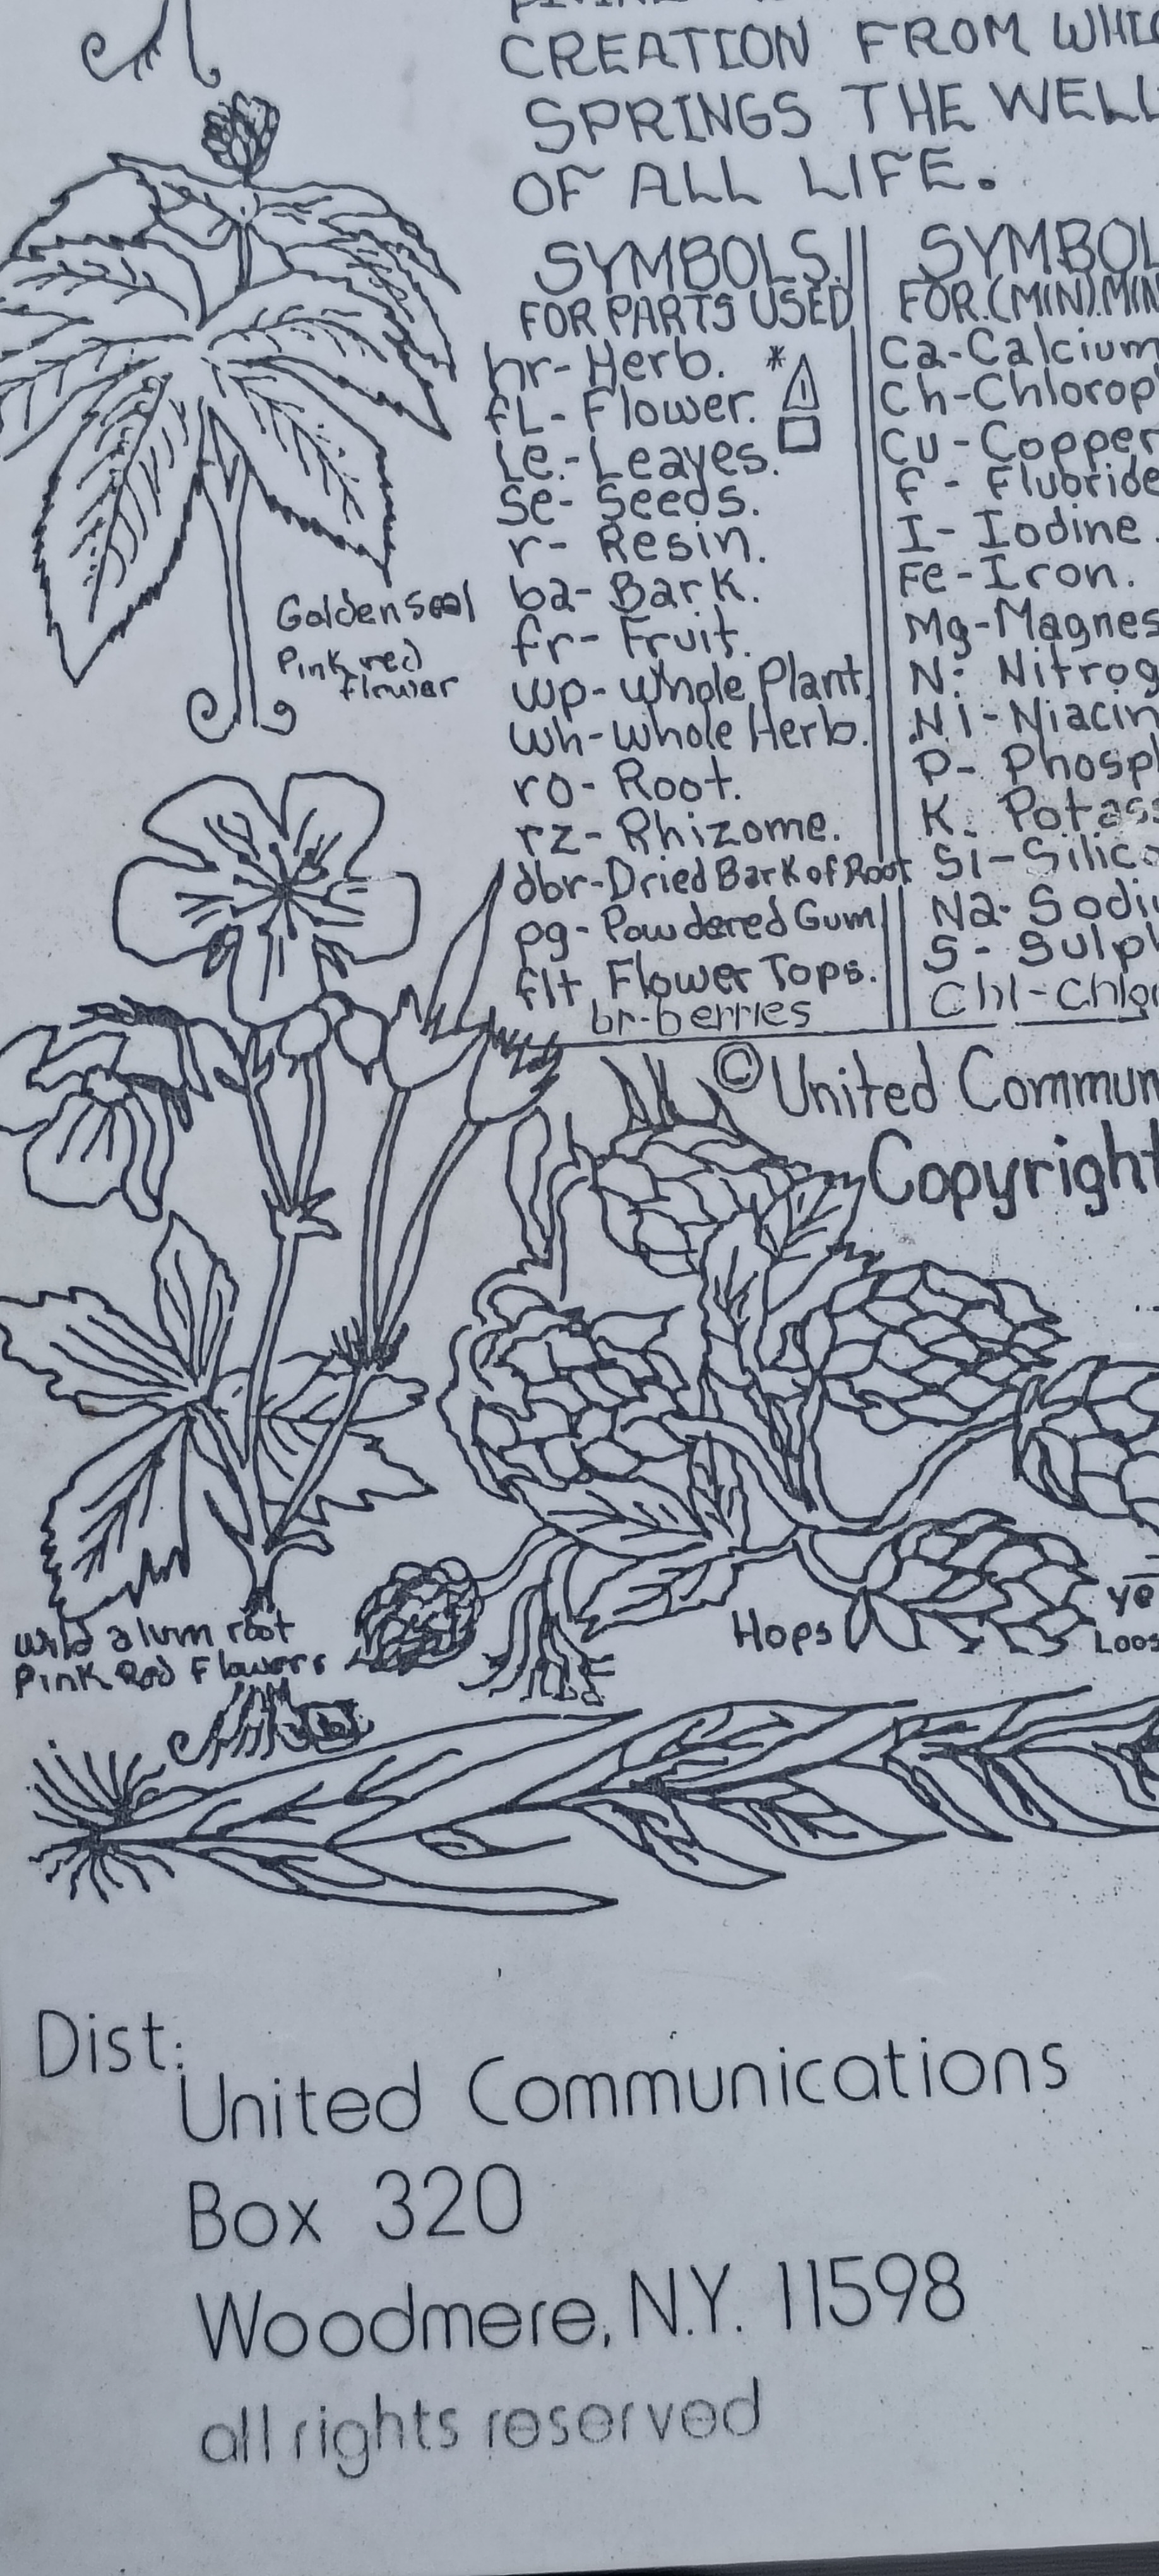 CREATION FROM WHIC
SPRINGS THE WELL
OF ALL LIFE.
SYMBOLS
FOR PARTS USED
hr-Herb. *
fL-Flower.
Le.-Leaves.
Se-Seeds.
r-Resin.
ba-Bark.
fr-Fruit.
wp-Whole Plant.
wh-Whole Herb.
ro-Root.
rz-Rhizome.
dbr-Dried Bark of Root
pg-Powdered Gum
flt Flower Tops.
br-berries
SYMBOL
FOR (MIN) MIN
Ca-Calcium
Ch-Chlorop
Cu-Copper
f-Fluoride
I-Iodine.
Fe-Iron.
Mg-Magnes
N: Nitrog
Ni-Niacin
P-Phosph
K. Potass
Si-Silico
Na-Sodiu
S-Sulph
Chl-Chlor
Goldenseal
Pink red
flower
© United Commun
Copyright
Wild alum root
Pink Red Flowers
Hops
Ye
Loos
Dist:
United Communications
Box 320
Woodmere, N.Y. 11598
all rights reserved